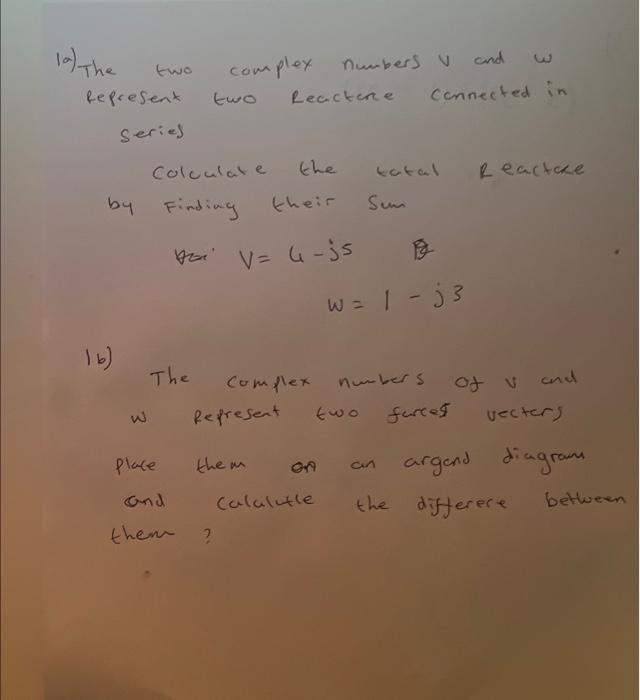 1a) The two complex numbers v and w
Represent two Reactance connected in
series
Calculate the total Reactace
by Finding their Sum
V = 4 - j5
w = 1 - j3
1b)
The complex numbers of v and
w Represent two forces vectors
Place them on an argand diagram
and calalutle the differere between
them ?